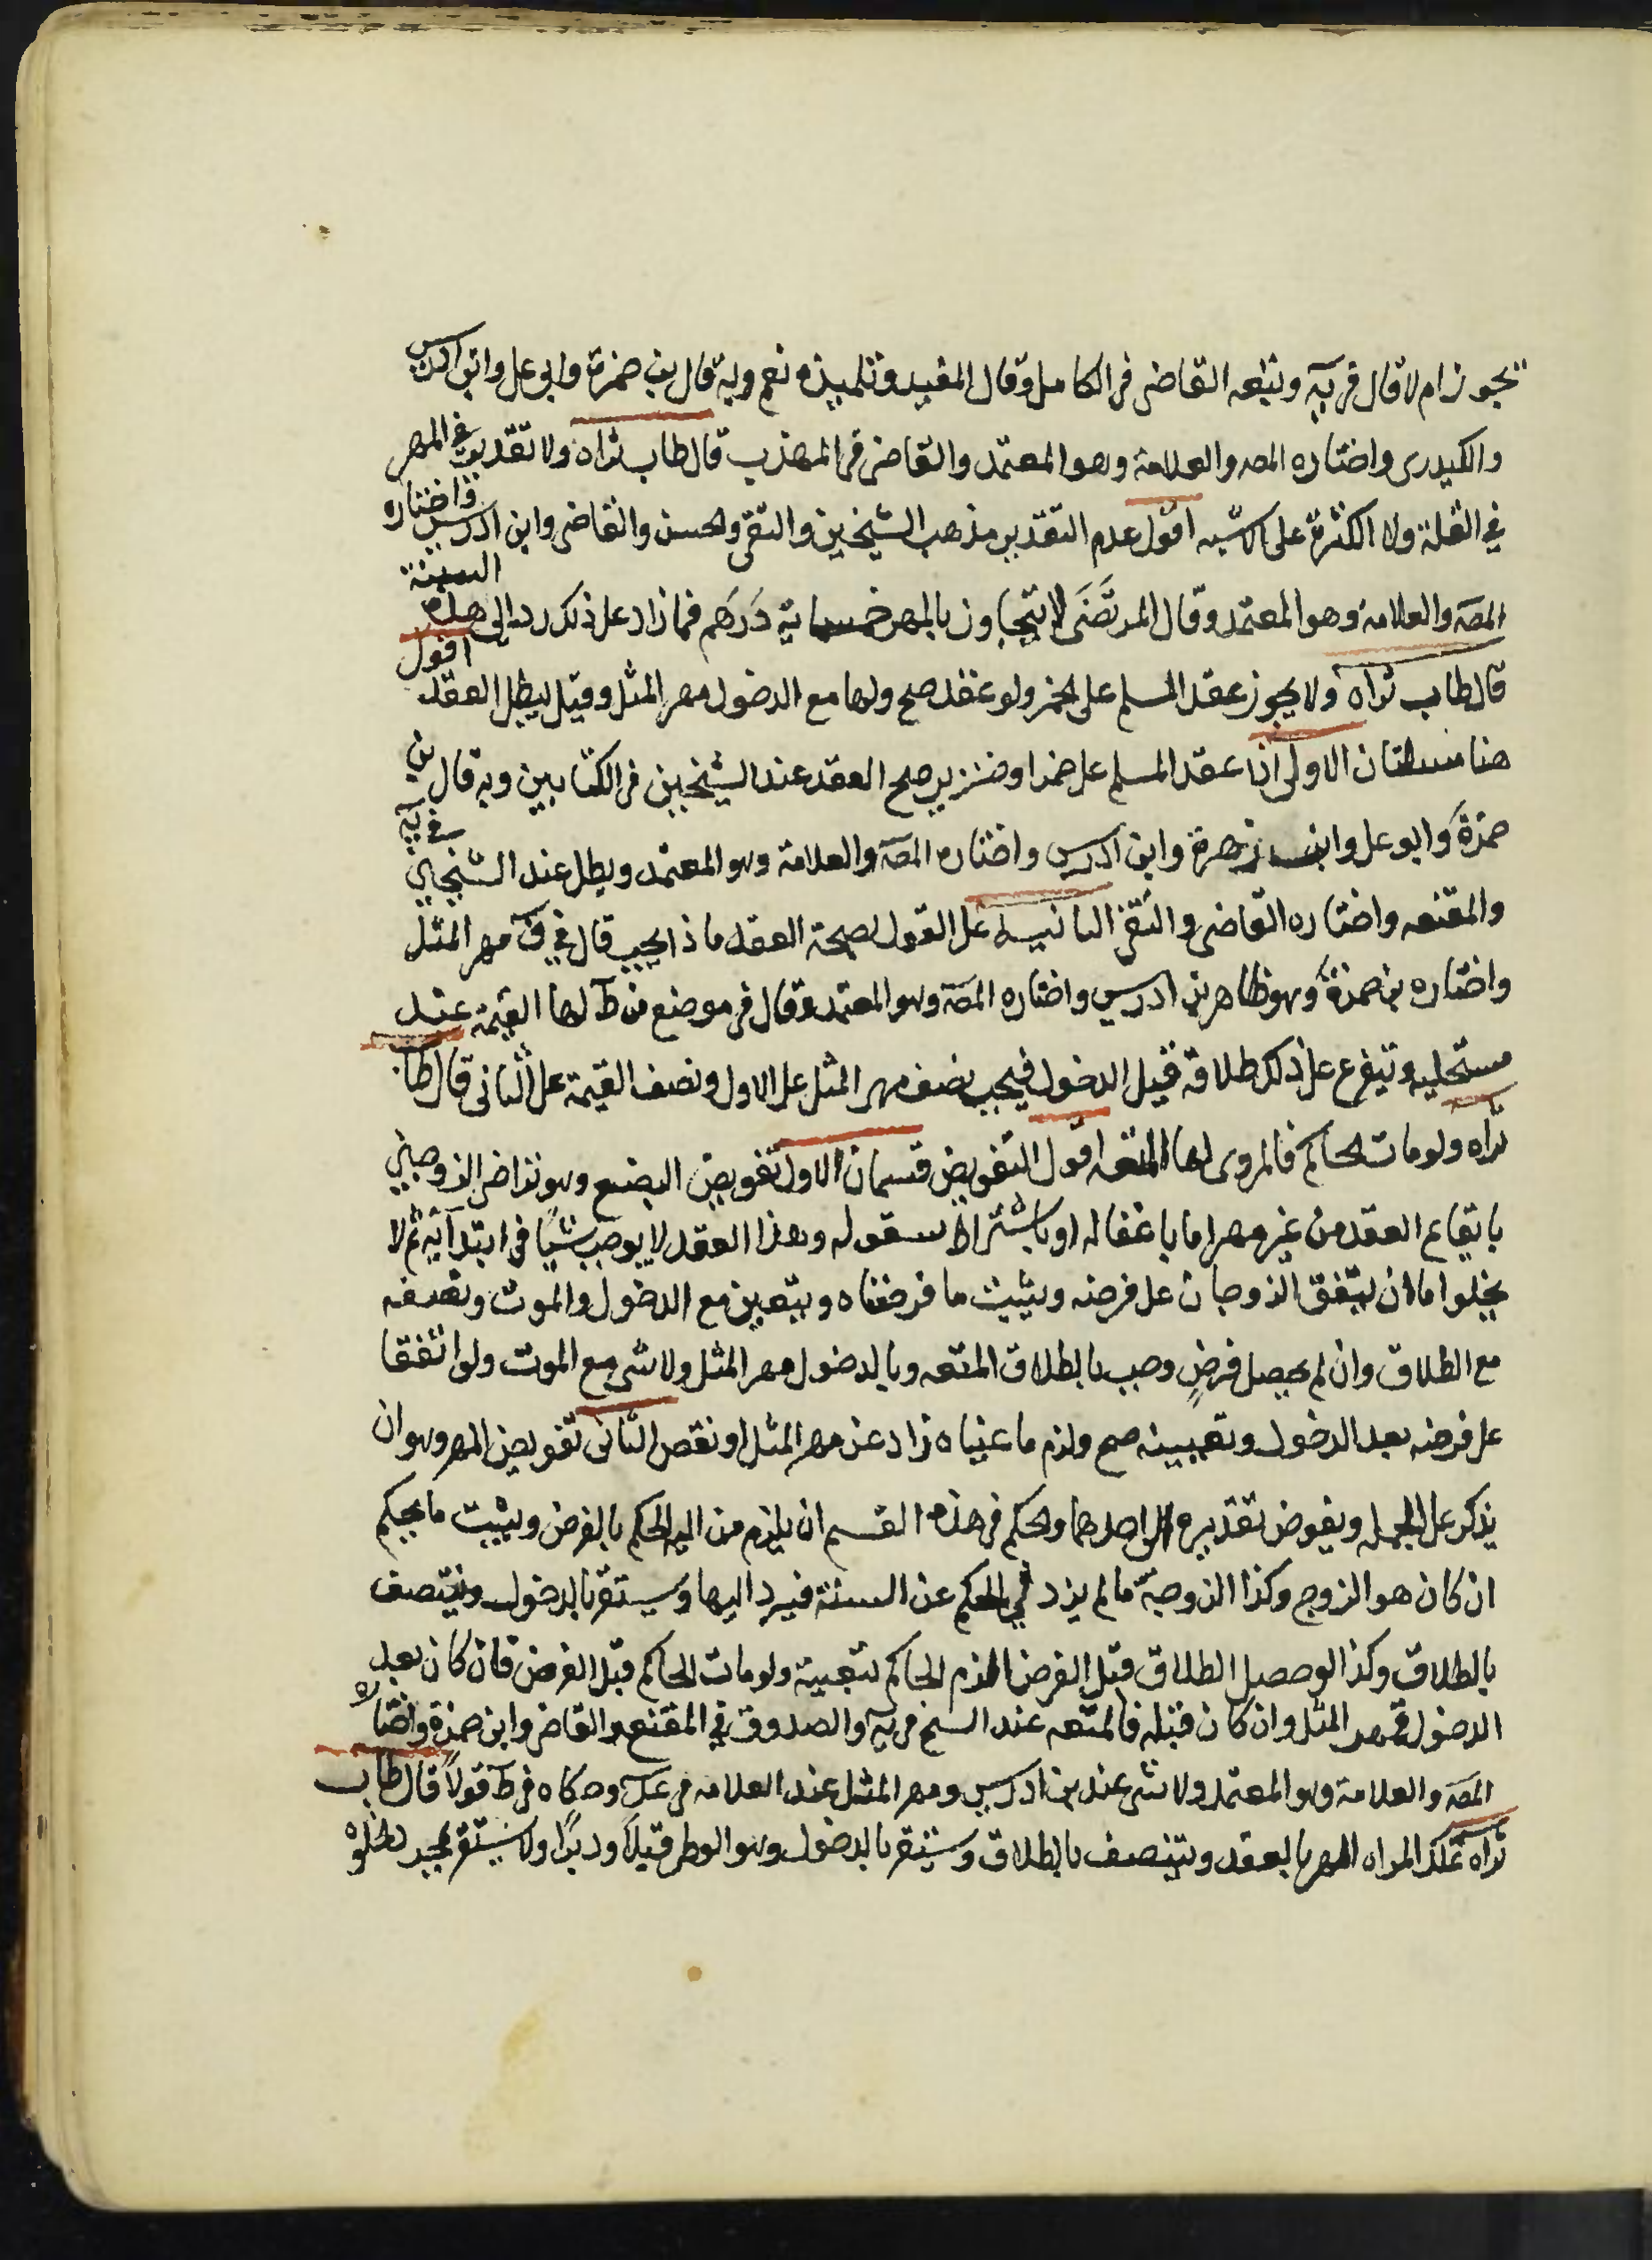 يجوز ام لا قال في يه وتبعه القاضي في الكامل وقال المفيد وتلميذه نعم وبه قال بن حمزة وابو علي وابن ادريس
والكيدري واختاره المصه والعلامة وهو المعتمد والقاضي في المهذب قال طاب ثراه ولا تقدير في المهر
في القلة ولا الكثرة على الاشبه اقول عدم التقدير مذهب الشيخين والتقي والحسن والقاضي وابن ادريس واختاره
المصه والعلامة وهو المعتمد وقال المرتضى لا يتجاوز بالمهر خمسماية درهم فما زاد على ذلك رد الى هذه السنة
قال طاب ثراه ولا يجوز عقد المسلم على الخمر ولو عقد صح ولها مع الدخول مهر المثل وقيل يبطل العقد اقول
هنا مسئلتان الاولى اذا عقد المسلم على خمر او خنزير صح العقد عند الشيخين في الكتابين وبه قال بن
حمزة وابو علي وابن زهرة وابن ادريس واختاره المصه والعلامة وهو المعتمد ويطل عند الشيخين في يه
والمقنعه واختاره القاضي والتقي الثانية على القول بصحة العقد ماذا يجب قال في ف مهر المثل
واختاره بن حمزة وهو ظاهر بن ادريس واختاره المصه وهو المعتمد وقال في موضع من ط لها القيمة عند
مستحليه ويتفرع على ذلك طلاقه قبل الدخول فيجب نصف مهر المثل على الاول ونصف القيمة على الثاني قال طاب
ثراه ولو مات الحاكم فالمروي لها المتعه اقول التفويض قسمان الاول تفويض البضع وهو تراضي الزوجين
بايقاع العقد من غير مهر اما باغفاله او باشتراط سقوله وهذا العقد لا يوجب شيا في ابتدآيه ثم لا
يخلوا اما ان يتفق الزوجان على فرضه ويثبت ما فرضناه ويتعين مع الدخول والموت ونصفه
مع الطلاق وان لم يحصل فرض وجب بالطلاق المتعه وبالدخول مهر المثل ولا شى مع الموت ولو اتفقا
على فرضه بعد الدخول وتعيينه صح ولزم ما عيناه زاد عن مهر المثل او نقص الثاني تفويض المهر وهو ان
يذكر على الجمله ويفوض تقديره الى احدهما والحكم في هذه القسم ان يلزم من اليه الحكم بالفرض ويثبت ما يحكم
ان كان هو الزوج وكذا الزوجة ما لم يزد في الحكم عن السنة فيرد اليها ويستقر بالدخول ويتنصف
بالطلاق وكذا لو حصل الطلاق قبل الفرض الزم الحاكم بتعيينه ولو مات الحاكم قبل الفرض فان كان بعد
الدخول فمهر المثل وان كان قبله فالمتعه عند الشيخ في يه والصدوق في المقنع والقاضي وابن حمزة واختاره
المصه والعلامة وهو المعتمد ولا شى عند بن ادريس ومهر المثل عند العلامه في عد وحكاه في ط قولا قال طاب
ثراه تملك المراه المهر بالعقد ويتنصف بالطلاق ويستقر بالدخول وهو الوطي قبلا ودبرا ولا يستقر بمجرد الخلوه